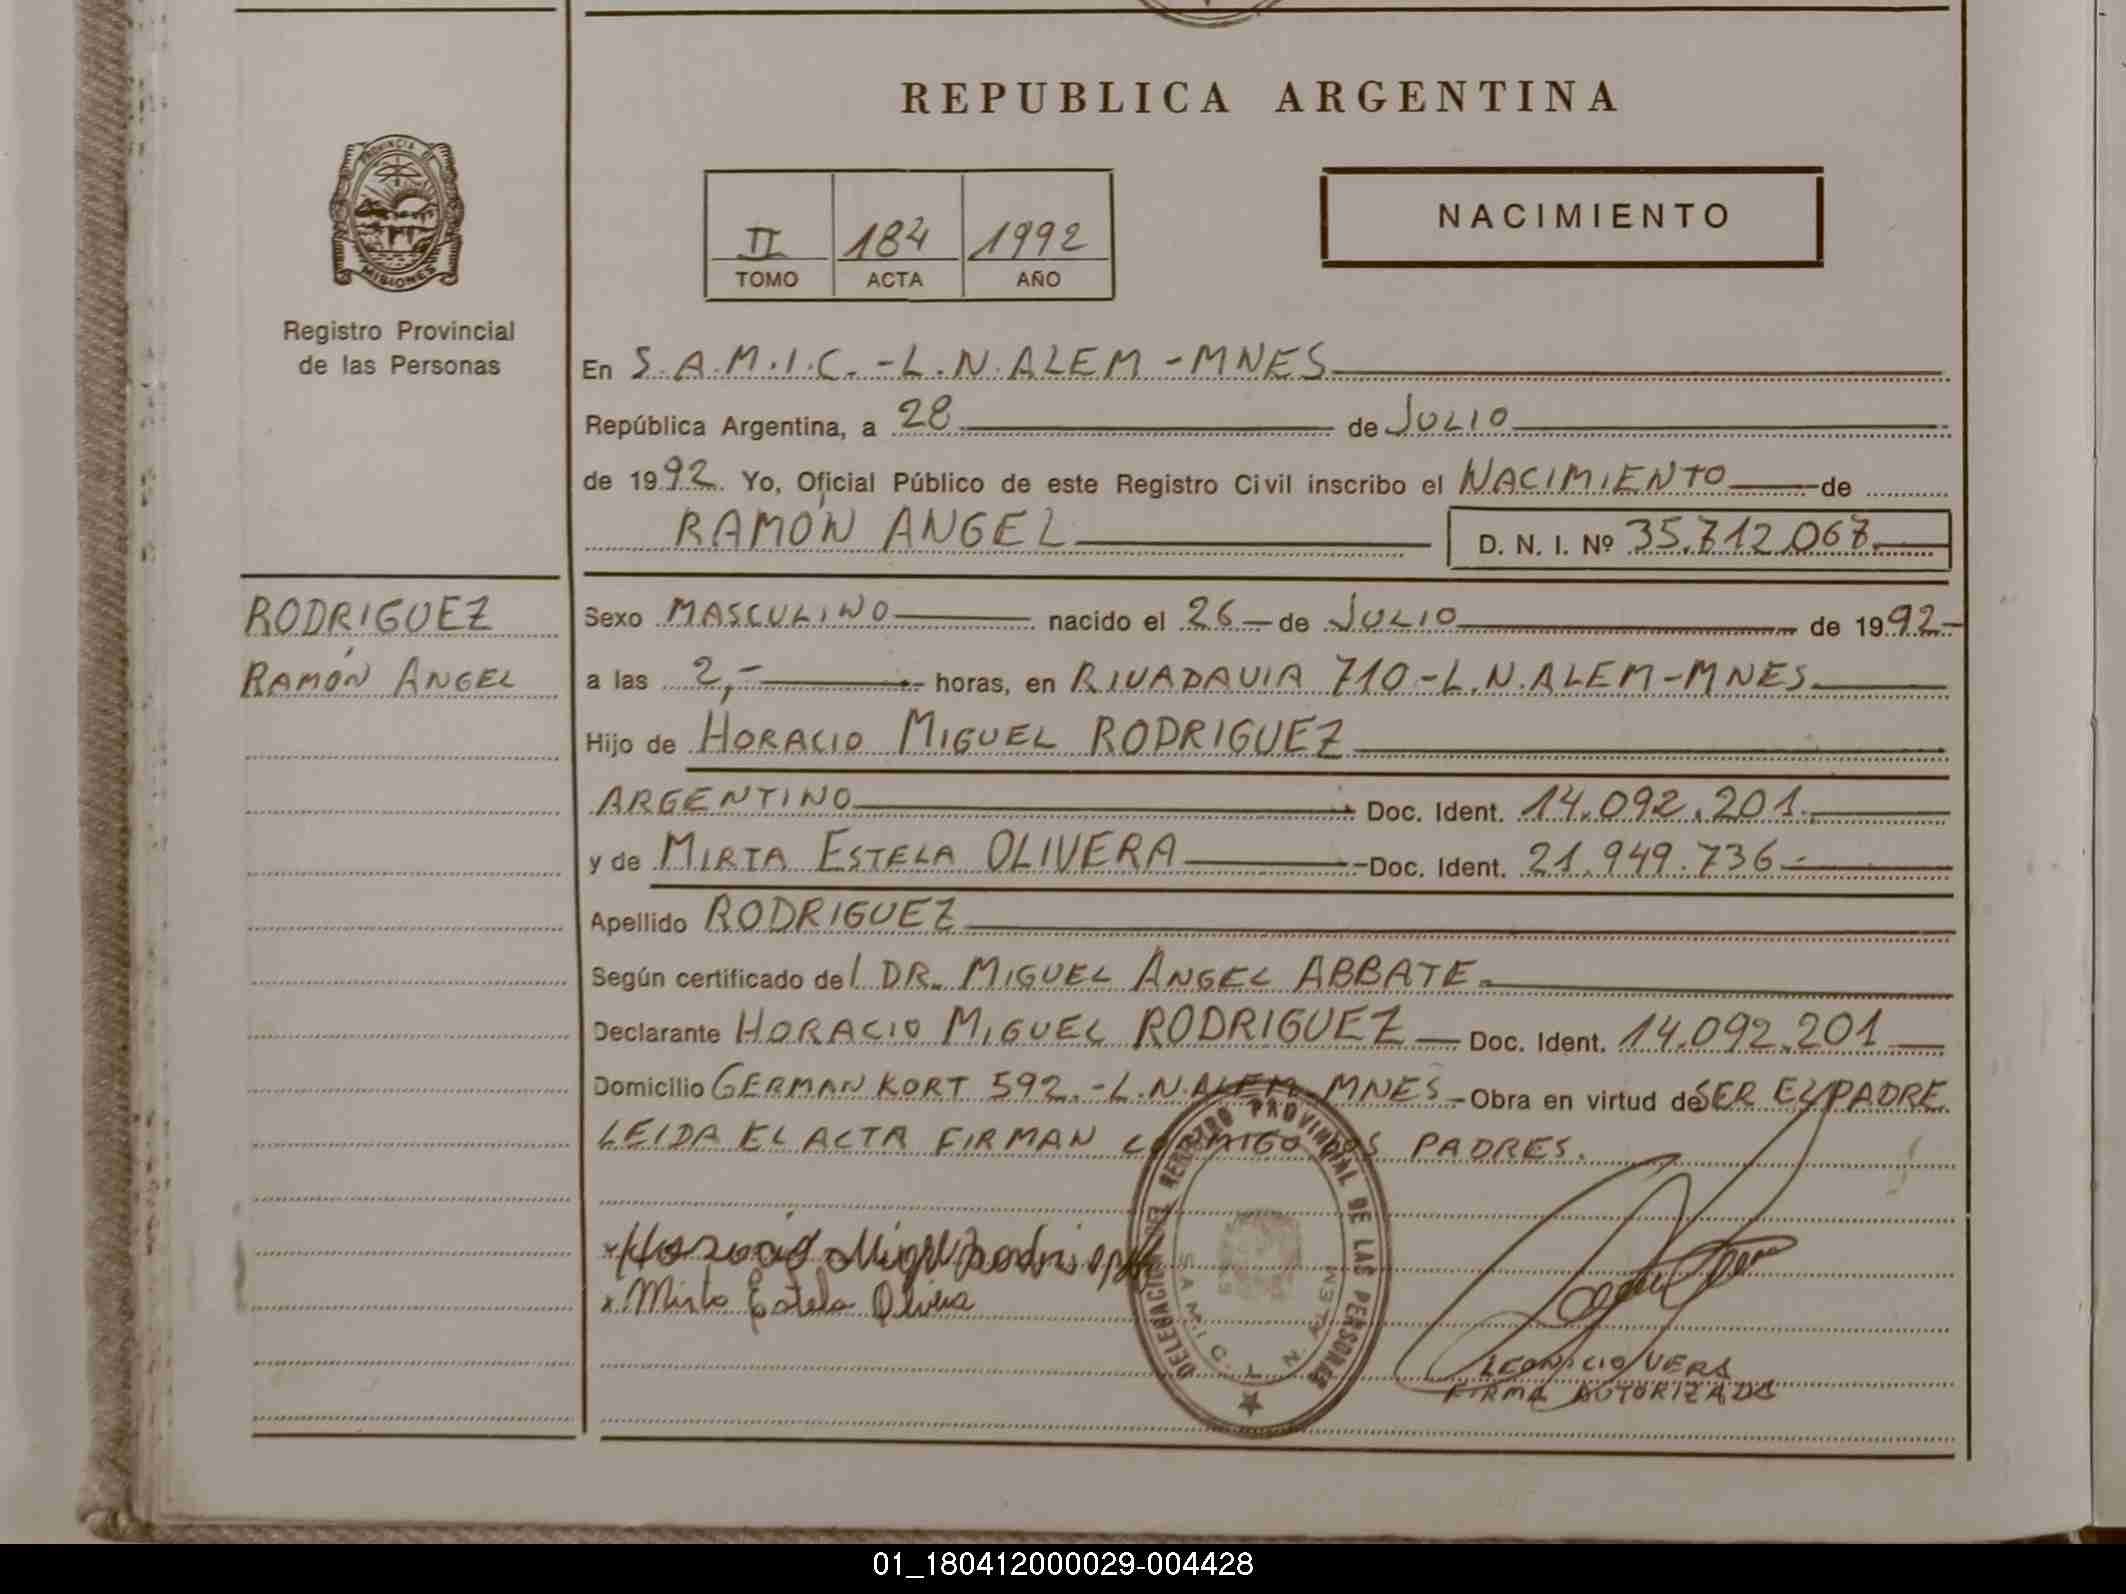 REPUBLICA ARGENTINA
PROVINCIA DE
MISIONES
Registro Provincial
de las Personas
II 184 1992
TOMO ACTA AÑO
NACIMIENTO
En S.A.M.I.C.-L.N.ALEM-MNES
República Argentina, a 28 de JULIO
de 1992. Yo, Oficial Público de este Registro Civil inscribo el NACIMIENTO de
RAMÓN ANGEL D. N. I. Nº 35.712.067
RODRIGUEZ
RAMÓN ANGEL
Sexo MASCULINO nacido el 26 de JULIO de 1992-
a las 2,- horas, en RIVADAVIA 710-L.N.ALEM-MNES.
Hijo de HORACIO MIGUEL RODRIGUEZ
ARGENTINO Doc. Ident. 14.092.201.
y de MIRTA ESTELA OLIVERA Doc. Ident. 21.949.736.-
Apellido RODRIGUEZ
Según certificado del DR. MIGUEL ANGEL ABBATE.
Declarante HORACIO MIGUEL RODRIGUEZ Doc. Ident. 14.092.201
Domicilio GERMAN KORT 592.-L.N.ALEM-MNES- Obra en virtud de SER EL PADRE
LEIDA EL ACTA FIRMAN CONMIGO LOS PADRES.
Horacio Miguel Rodriguez
x Mirta Estela Olivera
DELEGACION REGISTRO PROVINCIAL DE LAS PERSONAS
S.A.M.I.C. L. N. ALEM
LEONICIO VERA
FIRMA AUTORIZADA
01_180412000029-004428